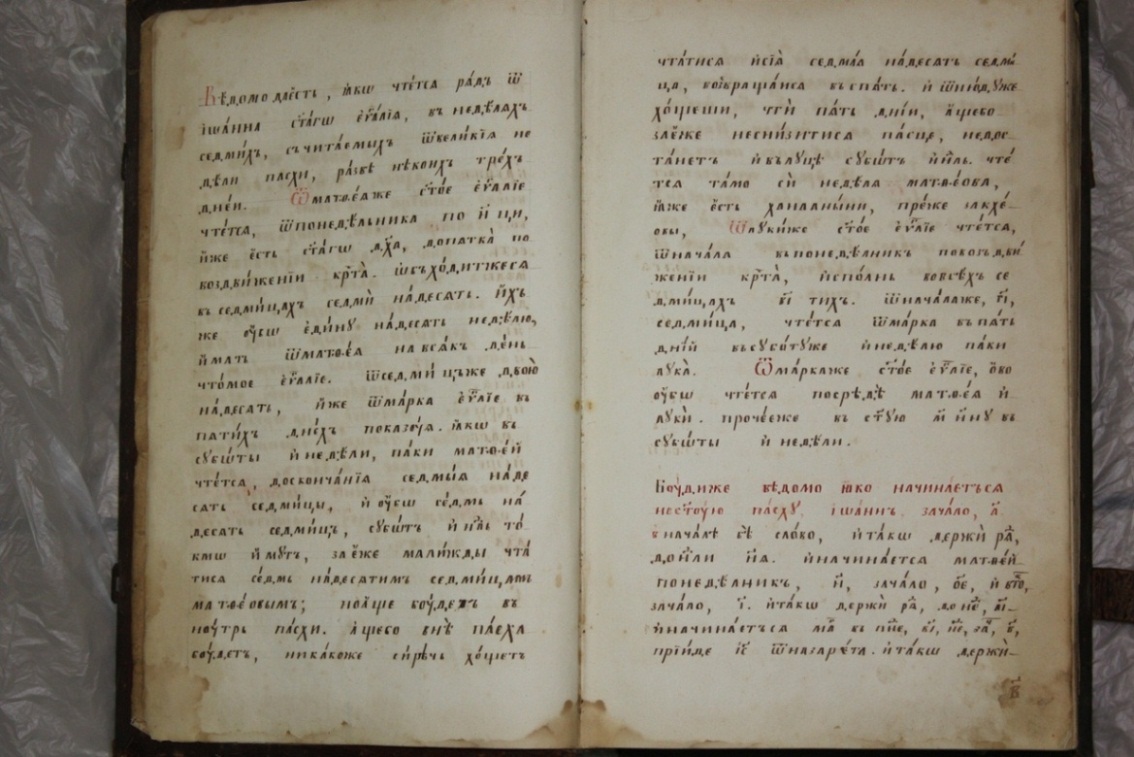 Вѣдомо да е҆сть, ꙗ҆́кѡ чте́тсѧ рѧ́дъ ѿ
і҆ѡа́нна ст҃а́гѡ є҆ѵ҃лїѧ, въ недѣлѧхъ
седми́хъ, счита́емыхъ ѿ вели́кїѧ не
дѣли пасхи, ра́звѣ нѣ́коихъ тре́хъ
дне́й. Ѿ матѳе́ѧ же ст҃о́е є҆ѵ҃лїе
чте́тсѧ, ѿ понедѣ́льника по н҃ ци,
и҆́же є҆́сть ст҃а́гѡ дх҃а, до патка̀ по
воздви́женїи крⷭ҇та̀. ѡ҆бхо́дит же сѧ
въ седми́цахъ седмѝ на́десѧть. и҆́хъ
же оу҆́бѡ є҆ди́ну на́десѧть недѣлю,
и҆́мать ѿ матѳе́а на всѧ́къ де́нь
что́мое є҆ѵ҃лїе. ѿ седми́цъ же двою̀
на́десѧть, и҆́же ѿ ма́рка є҆ѵ҃лїе въ
патихъ дне́хъ показу́ѧ. ꙗ҆́кѡ въ
субѡ́ты и҆ недѣ́ли, па́ки матѳе́й
чте́тсѧ, до сконча́нїѧ седмы́ѧ на́де
сать седми́цы, и҆ оу҆́бѡ се́дмь на́
десать седми́цъ, субѡ́тъ и҆ нⷣль то́
кмѡ и҆́мутъ, занѐ́же мали́жды чта́
тисѧ се́дмь на́десѧтимъ седми́цамъ
матѳе́овымъ; но а҆́ще бꙋ́детъ въ
нꙋ́трь па́схи. а҆́ще бо внѣ̀ па́сха
бꙋ́детъ, ника́коже си́рѣчь хо́щетъ
чта́тисѧ и҆ сїѧ̀ седма́ѧ на́десѧть седми́
ца, возвраща́йсѧ вспа́ть. и҆ ѿню́дꙋже
хо́щеши, чтѝ па́ть дні́й, а҆́ще бо
зѣ́ло не сни́зитсѧ па́сце, недос
та́нетъ и҆ въ лу́цѣ субѡ́тъ и҆ нⷣль. чте́
тсѧ та́мо сїѝ недѣ́лѧ матѳе́ова,
ꙗ҆́же є҆́сть ханаа́ныни, пре́жде закхе́
овы, Ѿ луки́ же ст҃о́е є҆ѵ҃лїе чте́тсѧ,
ѿ нача́ла въ понедѣ́лникъ по воздви́
женїи крⷭ҇та̀, и҆спо́лнь во всѣ́хъ се
дми́цахъ в҃і ти́хъ. ѿ нача́ла же, г҃і,
седми́ца, чте́тсѧ ѿ ма́рка въ па́ть
дні́й въ субо́ту же и҆ недѣ́лю па́ки
лука̀. Ѿ ма́рка же ст҃о́е є҆ѵ҃лїе, ѻ҆́во
оу҆́бѡ чте́тсѧ посредѣ̀ матѳе́ѧ и҆
лукѝ. про́чее же въ ст҃у́ю м҃ и҆́ну въ
субѡ́ты и҆ недѣ́ли.
Бꙋ́ди же вѣ́домо ꙗ҆́ко начина́етсѧ
на ст҃ꙋ́ю па́сху і҆ѡа́ннъ, зача́ло, а҃.
в нача́лѣ бѣ̀ сло́во, и҆ та́кѡ держѝ рѧ́дъ,
до нⷣли н҃ѧ. и҆ начина́етсѧ матѳе́й
понедѣ́лникъ, н҃, зача́ло, о҃е, и҆ вто́,
зача́ло, і҃. и҆ та́кѡ держѝ рѧ́дъ, до нⷣе, а҃і
и҆ начина́етсѧ ма́р въ пн҃е, в҃і, нⷣе, за́ч, в҃,
прїи́де і҆с҃ ѿ назаре́та. и҆ та́кѡ держѝ
в҃